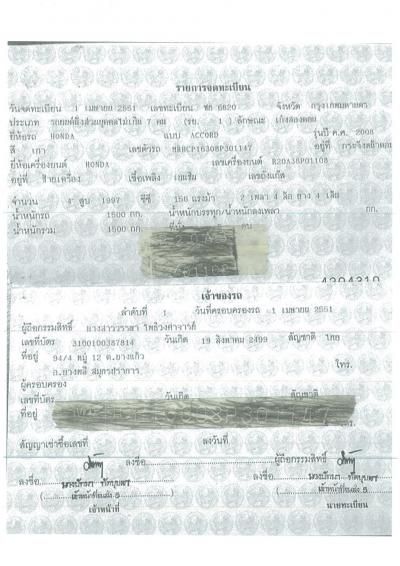 รายการจดทะเบียน
วันจดทะเบียน 1 เมษายน 2551 เลขทะเบียน 6820 จังหวัด กรุงเทพมหานคร
ประเภท รถยนต์นั่งส่วนบุคคลไม่เกิน 7 คน (รย. 1 ) ลักษณะ เก๋งสองตอน
ยี่ห้อรถ HONDA แบบ ACCORD รุ่นปี ค.ศ. 2008
สี เทา เลขตัวรถ MRHCP16308P301147 อยู่ที่
ยี่ห้อเครื่องยนต์ HONDA เลขเครื่องยนต์ R20A38P01108
อยู่ที่ ซ้ายเครื่อง เชื้อเพลิง เบนซิน เลขถังแก๊ส
จำนวน 4 สูบ 1997 ซีซี 156 แรงม้า 2 เพลา 4 ล้อ ยาง 4 เส้น
น้ำหนักรถ 1500 กก. น้ำหนักบรรทุก/น้ำหนักลงเพลา กก.
น้ำหนักรวม 1500 กก. ที่นั่ง คน
4304310
เจ้าของรถ
ลำดับที่ 1 วันที่ครอบครองรถ 1 เมษายน 2551
ผู้ถือกรรมสิทธิ์ นางสาววรรษา
เลขที่บัตร 3100100387814 วันเกิด 19 สิงหาคม 2499 สัญชาติ ไทย
ที่อยู่ 94/4 หมู่ 12 ต.บางแก้ว
อ.บางพลี สมุทรปราการ โทร.
ผู้ครอบครอง
เลขที่บัตร วันเกิด สัญชาติ
ที่อยู่ โทร.
สัญญาเช่าซื้อเลขที่ ลงวันที่
ลงชื่อ ผู้ถือกรรมสิทธิ์
ลงชื่อ ลงชื่อ
เจ้าหน้าที่ นายทะเบียน